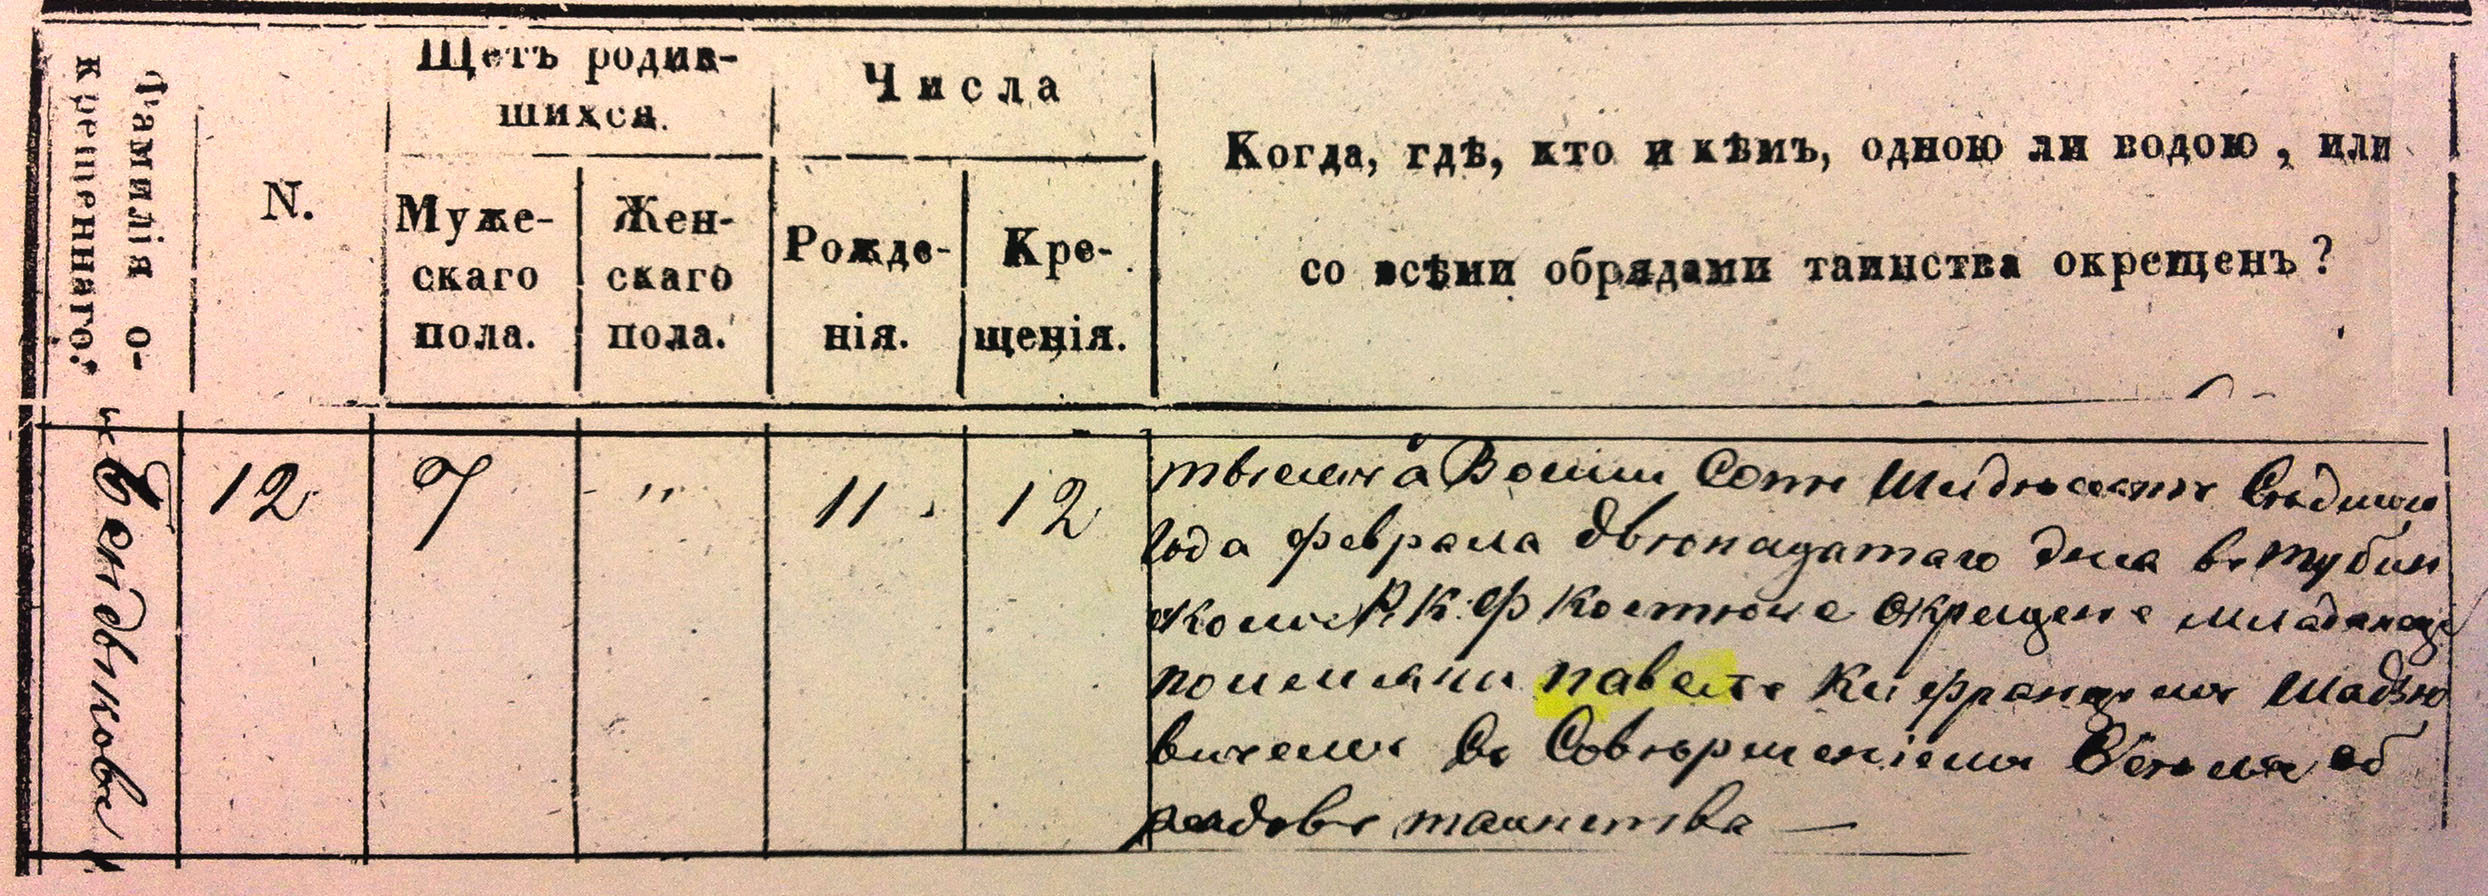 Фамилія о-
крещеннаго.
N.
Щетъ родив-
шихся.
Муже-
скаго
пола.
Жен-
скаго
пола.
Числа
Рожде-
нія.
Кре-
щенія.
Когда, гдѣ, кто и кѣмъ, одною ли водою, или
со всѣми обрядами таинства окрещенъ?
12
7
"
11
12
Восим Сотъ
Года феврала двюнацатаго дна въ Тубин
скомъ Р. К. Ф костюле окрещенъ младенецъ
именими павелъ Кс францемъ Шадзю
вичемъ Со Совершеніемъ Всехъ об
радовъ таинства —